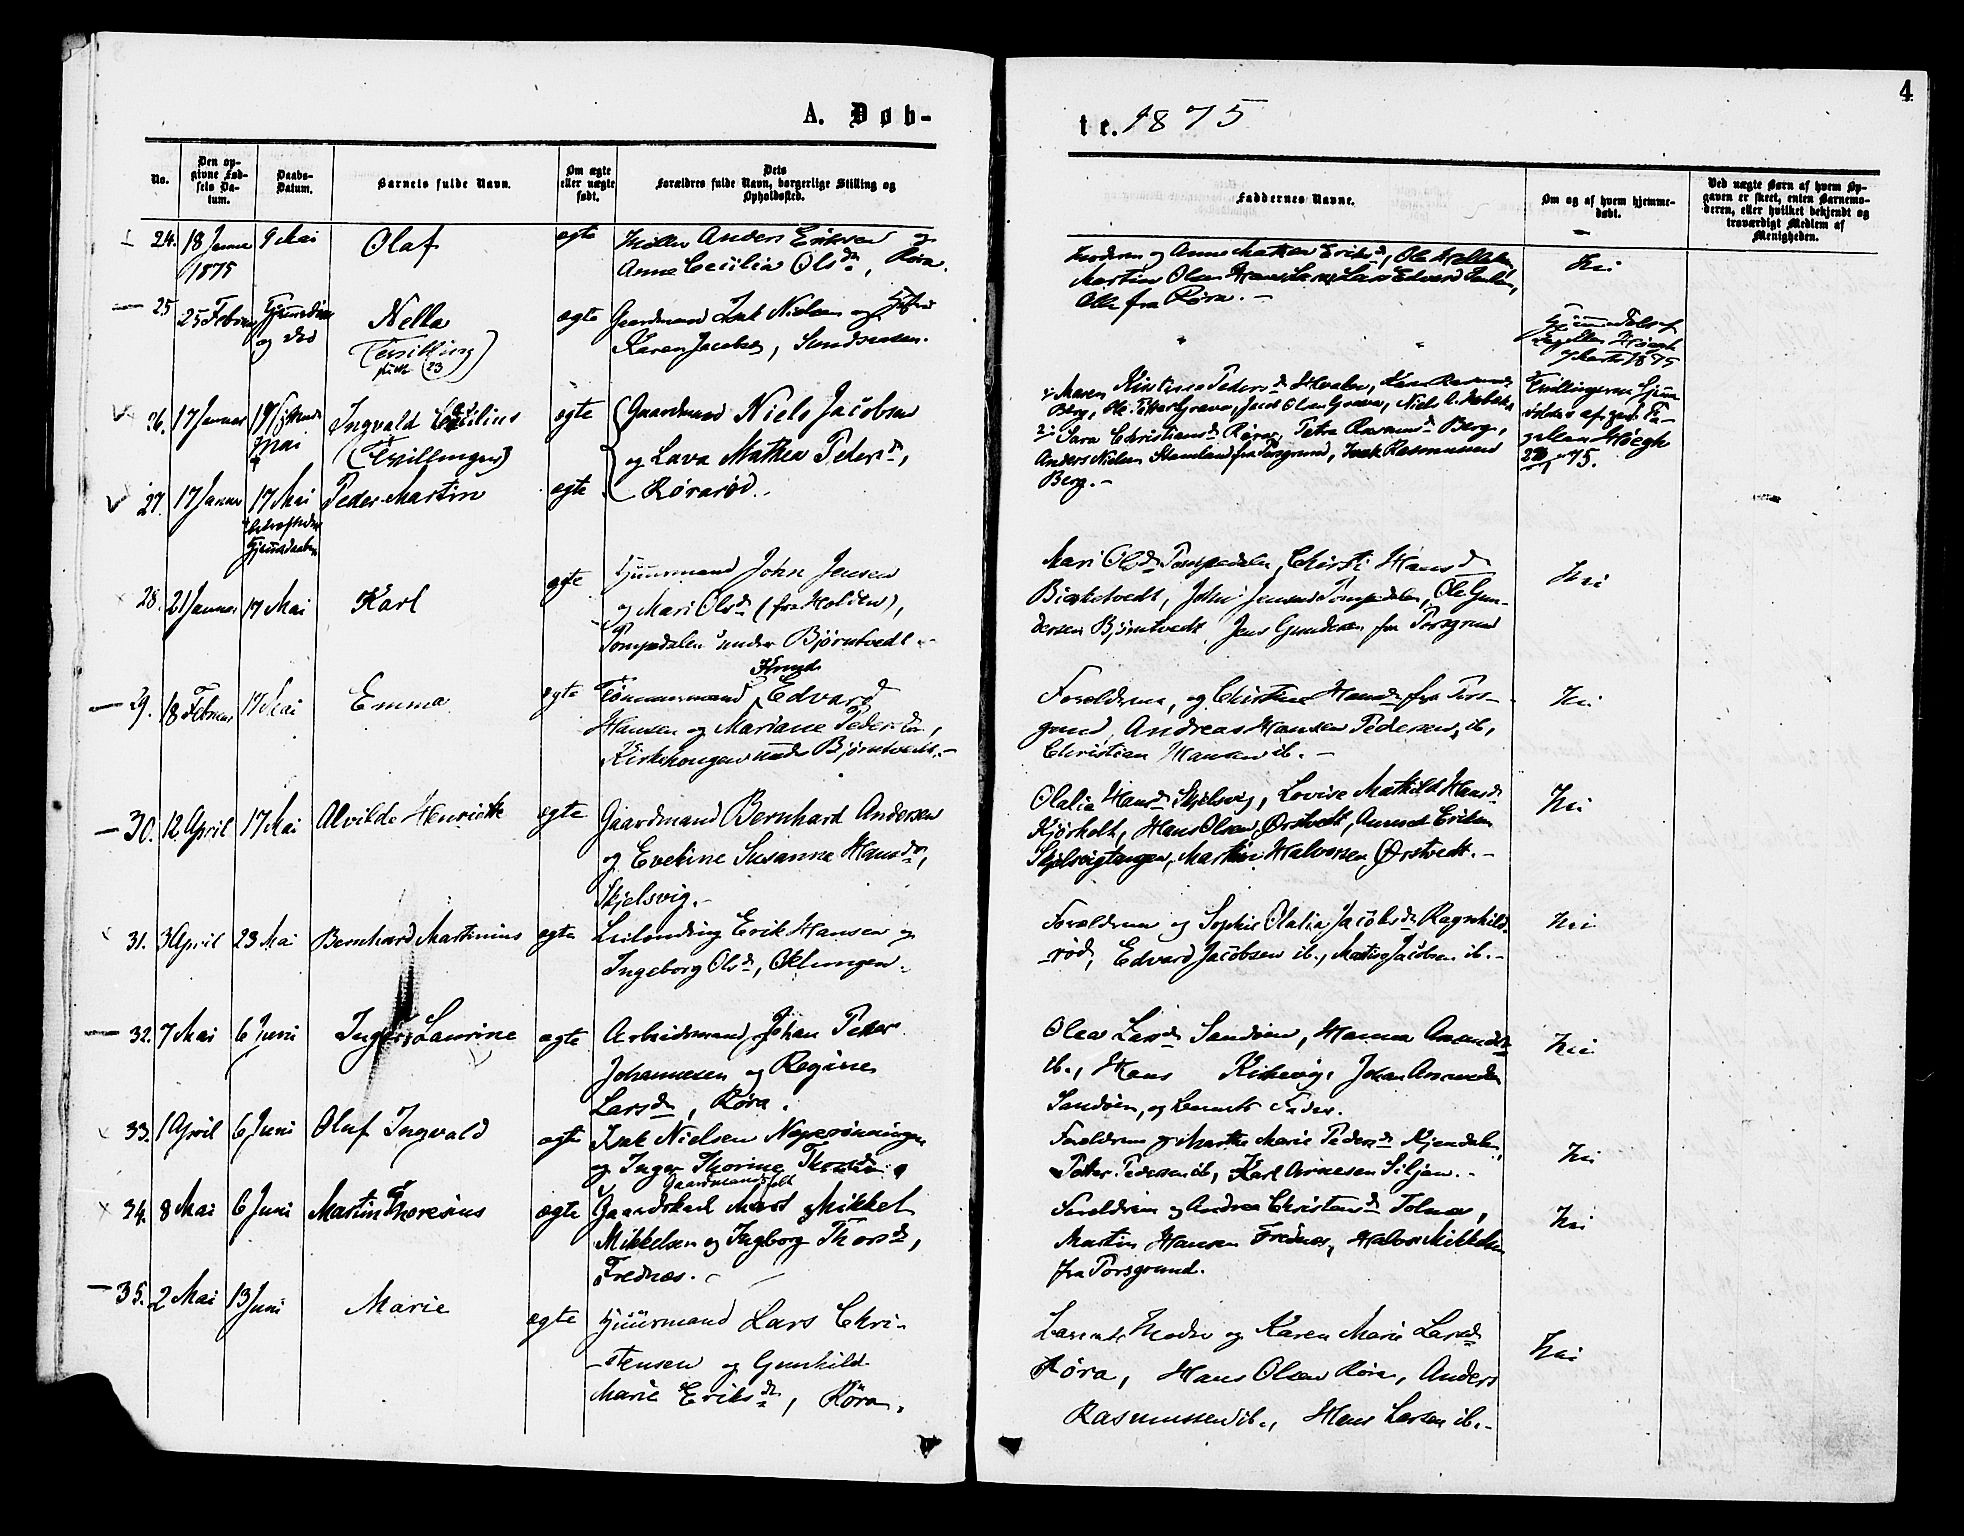 4
A. Døb-
te. 1875
No.
Den op-
givne Fød-
sels Da-
tum.
Daabs-
Datum.
Barnets fulde Navn.
Om ægte
eller uægte
født.
Dets
Forældres fulde Navn, borgerlige Stilling og
Opholdssted.
Faddernes Navne.
Om og af hvem hjemme-
døbt.
Ved uægte Børn af hvem Op-
gaven er skeet, enten Barnemo-
deren, eller hvilket bekjendt og
troværdigt Medlem af
Menigheden.
24. 18 Januar 9 Mai Olaf ægte Anders Eriksen og
1875 Anne Cecilia Olsd., Røra.
Moderen og Anne Mathea Eriksd., Ole
Martin Olsen Lars Edvard
Alle fra Røra. -
Nei
25 25 Februar og død Nella ægte Gaardmand Isak Nielsen og Hustru
(Tvilling) Karen Jacobsd., Sundsaasen.
Høegh
1875
26. 17 Januar 17 Mai Ingvald Cecilius ægte Gaardmand Niels Jacobsen
(Tvillinger) og Lava Mathea Pedersd.,
27. 17 Januar 17 Mai Peder Martin ægte Rørarød.
Hjemmedaaben
1: Maren Kirstine Pedersd. Hvalen, Karen Rasmusd.
Berg, Ole Grava, Jacob Olsen Grava, Niels
2: Sara Christiansd. Røra, Petra Rasmusd. Berg,
Anders Nielsen fra Porsgrund, Isak Rasmussen
Berg. -
Tvillingerne hjem-
døbte af
Høegh
75.
28. 21 Januar 17 Mai Karl ægte Huusmand John Jensen
og Mari Olsd. (fra Holden),
Pompedalen under Bjørntvedt. -
Mari Olsd. Pompedalen, Christi Hansd.
Birketvedt, John Jensen Pompedalen, Ole Gun-
dersen Bjørntvedt, Jens Gundersen fra Porsgrund
Nei
29. 18 Februar 17 Mai Emma ægte Tømmermand Knud Edvard
Hansen og Mariane Pedersd.,
Kirkehougen under Bjørntvedt. -
Forældrene, og Christine Hansd. fra Pors-
grund, Andreas Hansen Pedersen, ib.,
Christian Hansen ib. -
Nei
30. 12 April 17 Mai Alvilde Henriette ægte Gaardmand Bernhard Andersen
og Eveline Susanne Hansd.,
Skjelsvig. -
Olalia Hansd. Skjelsvig, Lovise Mathild Hansd.
Kjørholt, Hans Olsen Ørstvedt, Amund Eriksen
Skjelsvigtangen, Martin Halvorsen Ørstvedt. -
Nei
31. 3 April 23 Mai Bernhard Martinius ægte Leilænding Erik Hansen og
Ingeborg Olsd., Oklungen.
Forældrene og Sophie Olalia Jacobsd. Ragnhild-
rød, Edvard Jacobsen ib., Mathis Jacobsen ib. -
Nei
32. 7 Mai 6 Juni Inger Laurine ægte Arbeidsmand Johan Peder
Johannesen og Regine
Larsd., Røra.
Olea Larsd. Sandøen, Hanna Amundsd.
ib., Hans Kirkevig, Johan Amundsen
Sandøen, og Barnets Fader.
Nei
33. 1 April 6 Juni Oluf Ingvald ægte Isak Nielsen
og Inger Thorine
Forældrene og Marthe Marie Pedersd. Kjendalen,
Petter Pedersen ib., Karl Arnesen Siljan. -
Nei
34. 8 Mai 6 Juni Martin Thoresius ægte Mikkel
Mikkelsen og Ingborg Thorsd.,
Frednæs. -
Forældrene og Andrea Christensd. Tolnæs,
Martin Hansen Frednæs, Halvor Mikkelsen
fra Porsgrund.
Nei
35. 2 Mai 13 Juni Marie ægte Huusmand Lars Chri-
stensen og Gunhild
Marie Eriksd., Røra.
Barnets Moder og Karen Marie Larsd.
Røra, Hans Olsen Røra, Anders
Rasmussen ib., Hans Larsen ib. -
Nei